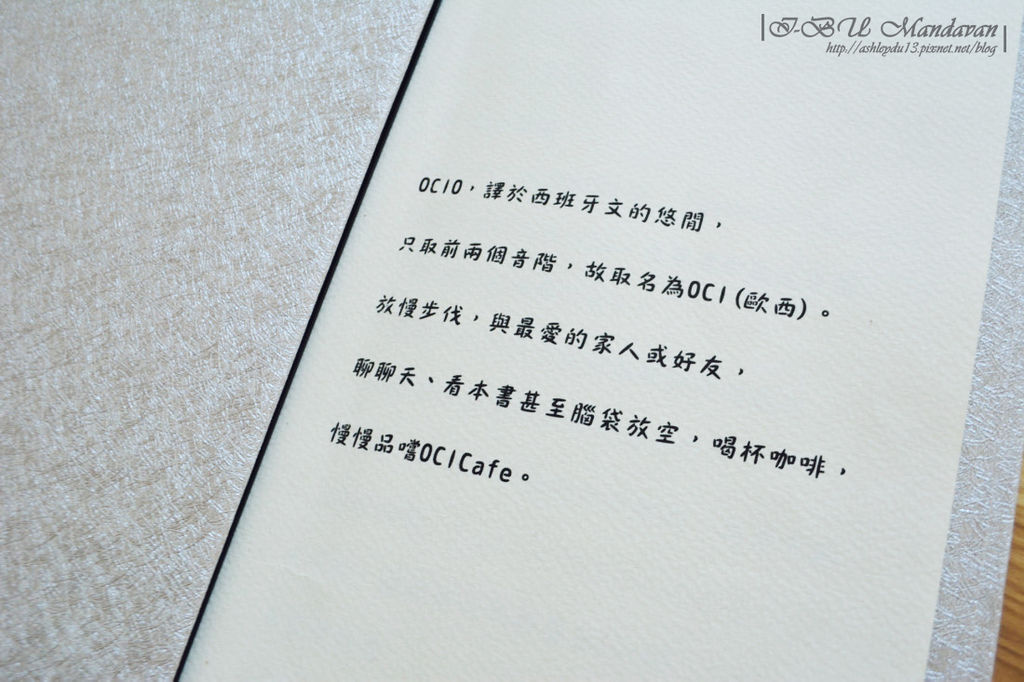 I-BU Mandavan
http://ashleydu13.pixnet.net/blog
OCIO，譯於西班牙文的悠閒，
只取前兩個音階，故取名為OCI(歐西)。
放慢步伐，與最愛的家人或好友，
聊聊天、看本書甚至腦袋放空，喝杯咖啡，
慢慢品嚐OCICafe。